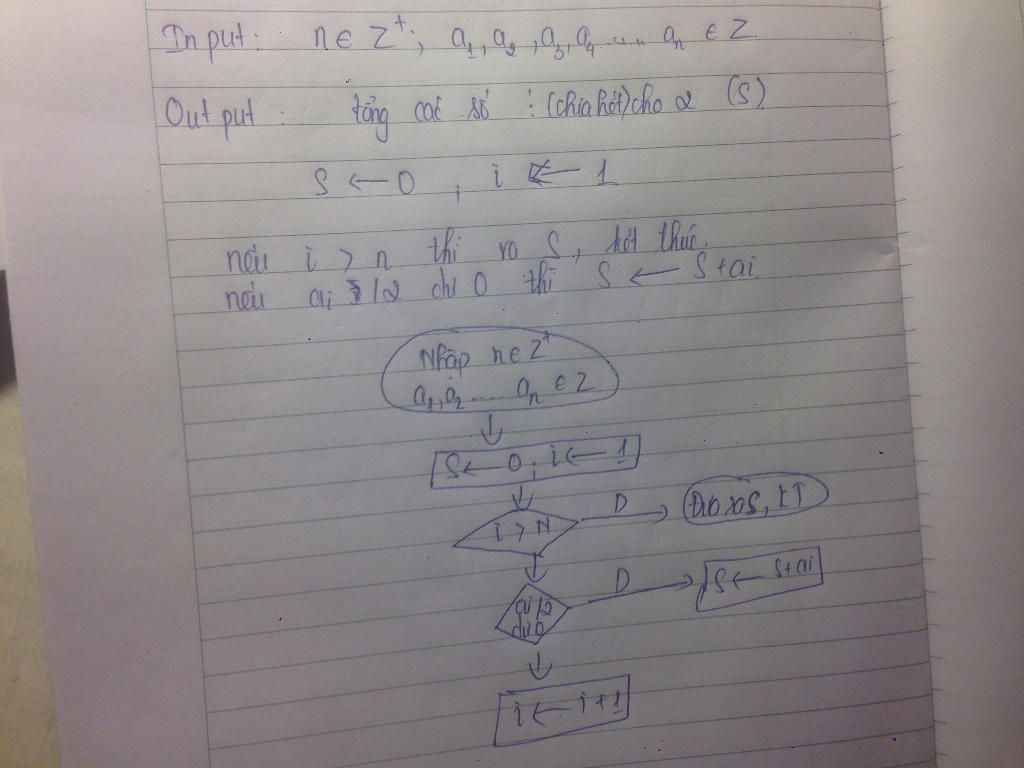 Input: n ∈ Z⁺; a₁, a₂, a₃, a₄ ..... aₙ ∈ Z
Output: tổng các số ⋮ (chia hết) cho 2 (S)
S ← 0, i ← 1
nếu i > n thì ra S, kết thúc.
nếu ai /2 dư 0 thì S ← S+ai
Nhập n ∈ Z⁺
a₁, a₂ .... aₙ ∈ Z
S ← 0; i ← 1
i > N
Đ
Đưa ra S, KT
ai/2
dư 0
Đ
S ← S+ai
i ← i+1